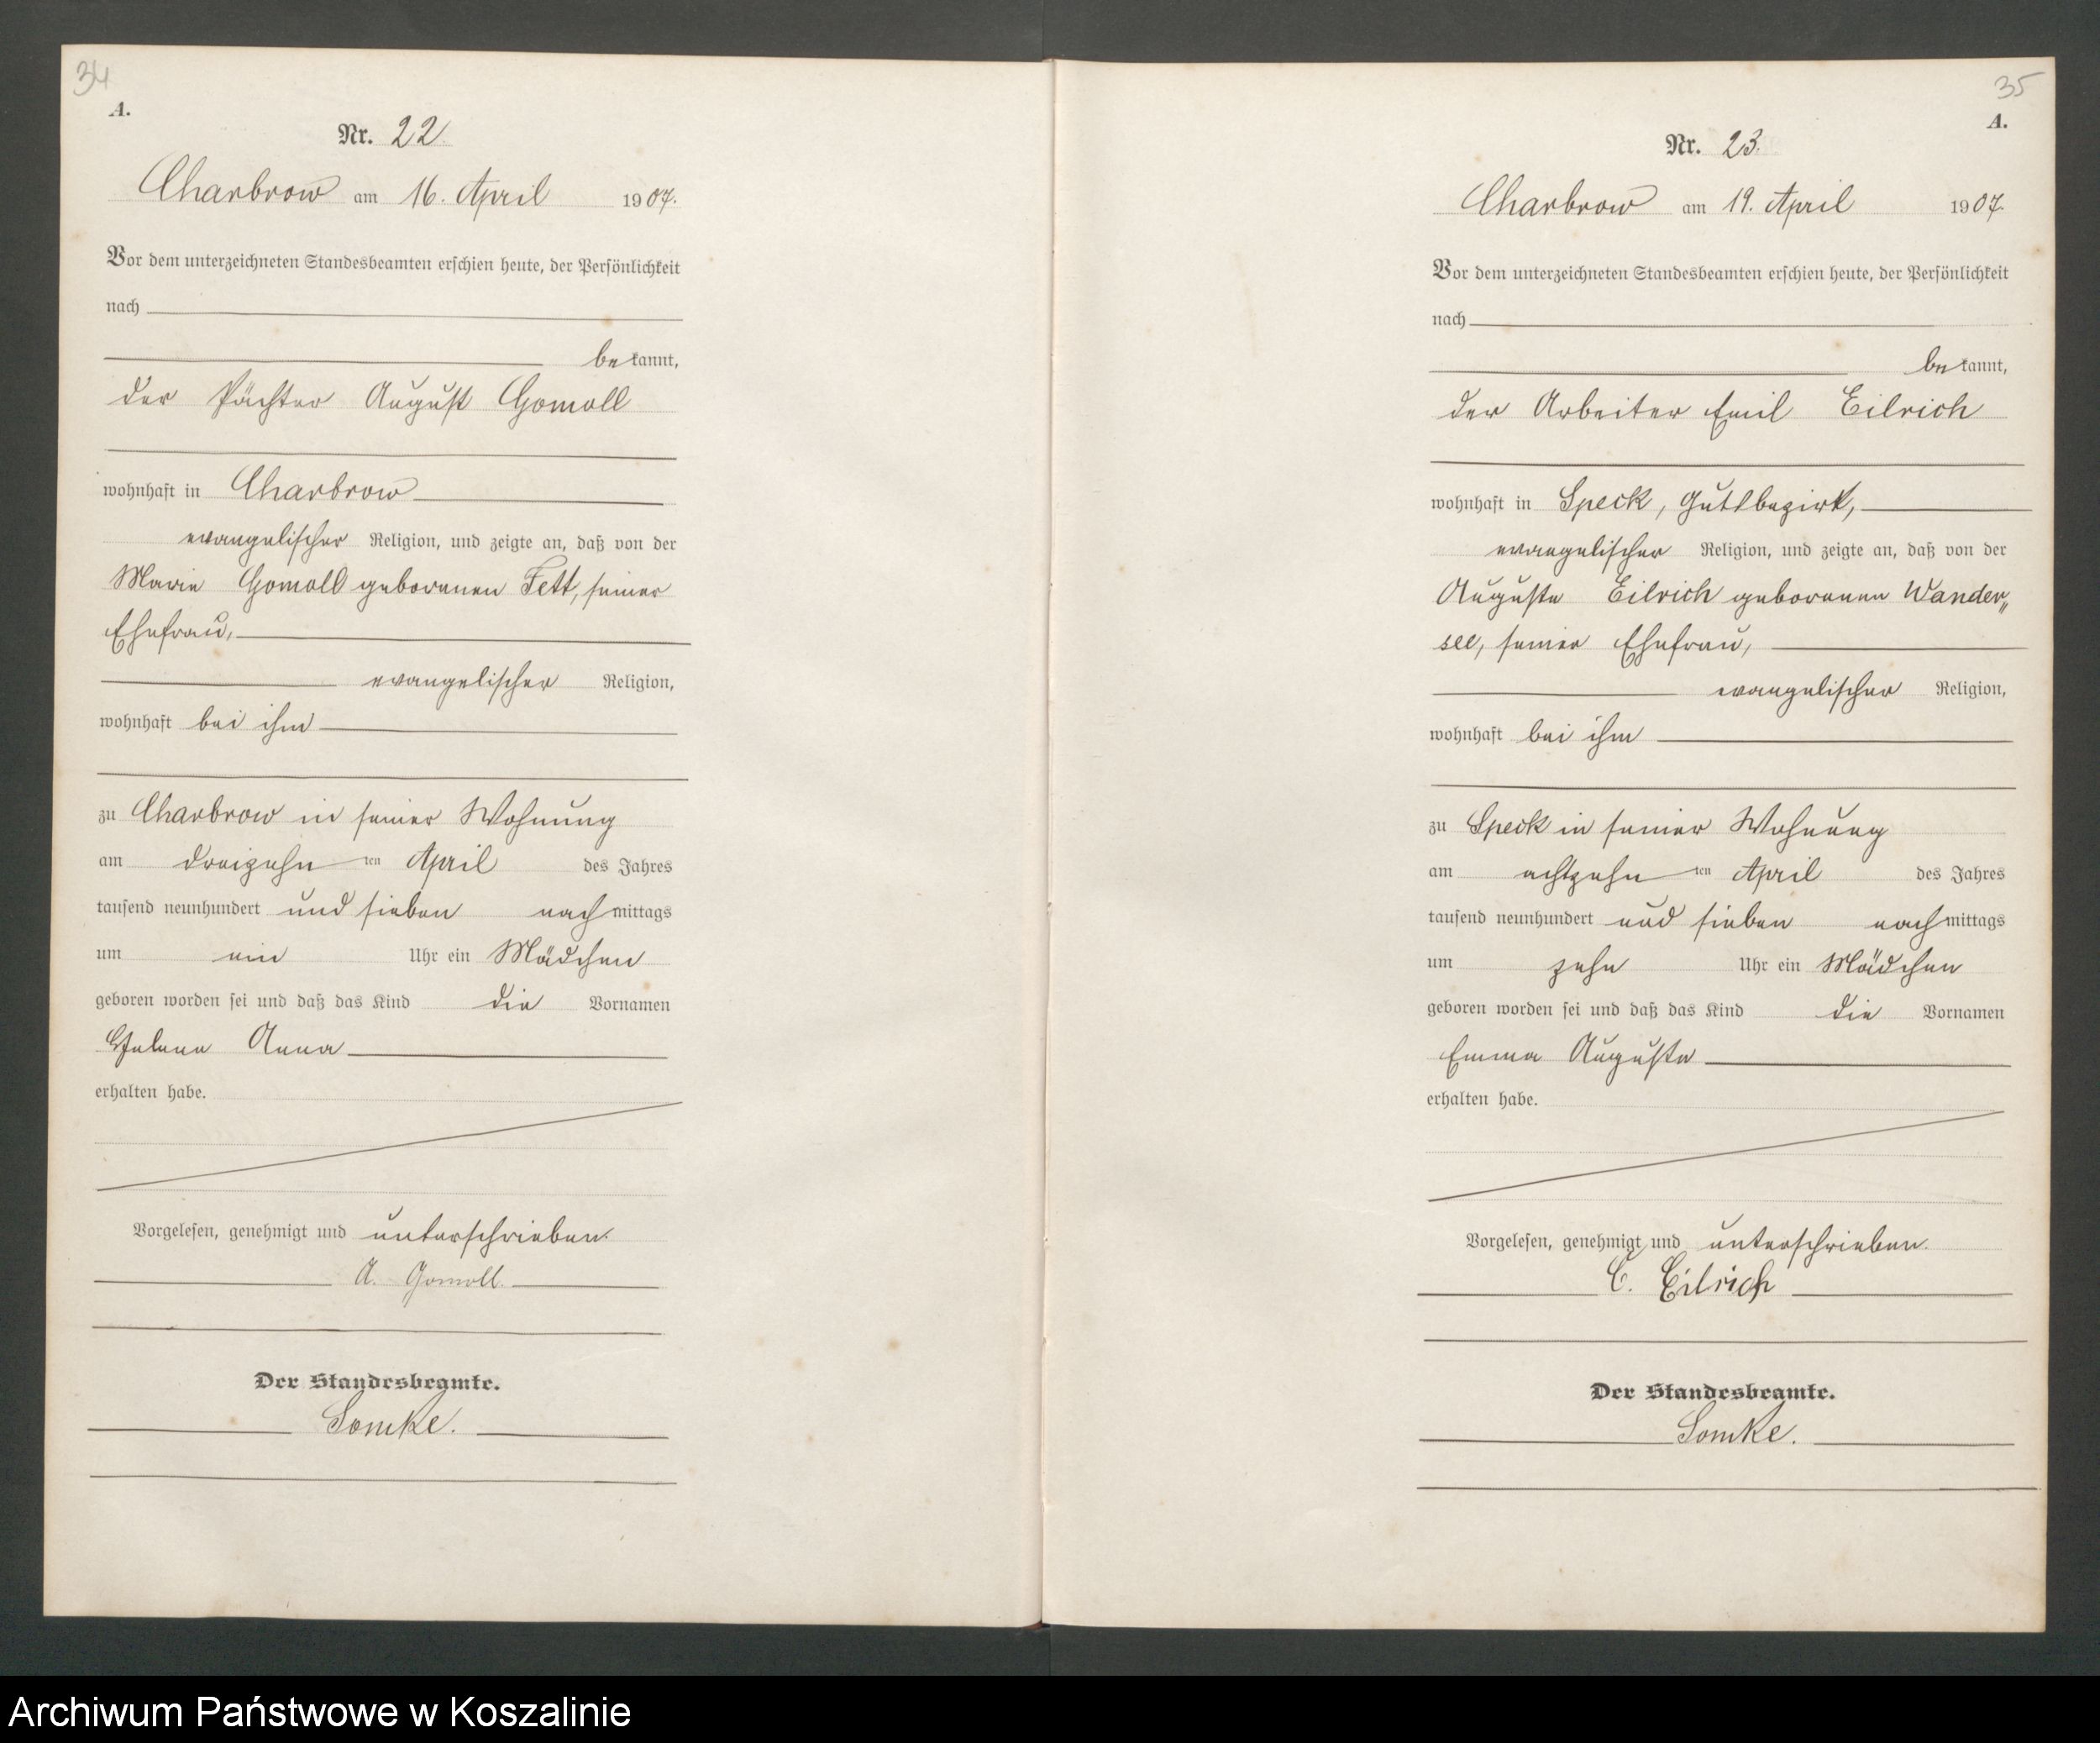 34
A.
Nr. 22.
Charbrow am 16. April 1907.
Vor dem unterzeichneten Standesbeamten erschien heute, der Persönlichkeit
nach
bekannt,
der Pächter August Gomoll
wohnhaft in Charbrow
evangelischer Religion, und zeigte an, daß von der
Marie Gomoll geborenen Fett, seiner
Ehefrau,
evangelischer Religion,
wohnhaft bei ihm
zu Charbrow in seiner Wohnung
am dreizehn ten April des Jahres
tausend neunhundert und sieben nachmittags
um ein Uhr ein Mädchen
geboren worden sei und daß das Kind die Vornamen
Helene Anna
erhalten habe.
Vorgelesen, genehmigt und unterschrieben.
A. Gomoll.
Der Standesbeamte.
Somke.
35
A.
Nr. 23.
Charbrow am 19. April 1907.
Vor dem unterzeichneten Standesbeamten erschien heute, der Persönlichkeit
nach
bekannt,
der Arbeiter Emil Eilrich
wohnhaft in Speck, Gutsbezirk,
evangelischer Religion, und zeigte an, daß von der
Auguste Eilrich geborenen Wander„
see, seiner Ehefrau,
evangelischer Religion,
wohnhaft bei ihm
zu Speck in seiner Wohnung
am achtzehn ten April des Jahres
tausend neunhundert und sieben nachmittags
um zehn Uhr ein Mädchen
geboren worden sei und daß das Kind die Vornamen
Emma Auguste
erhalten habe.
Vorgelesen, genehmigt und unterschrieben.
E. Eilrich
Der Standesbeamte.
Somke.
Archiwum Państwowe w Koszalinie